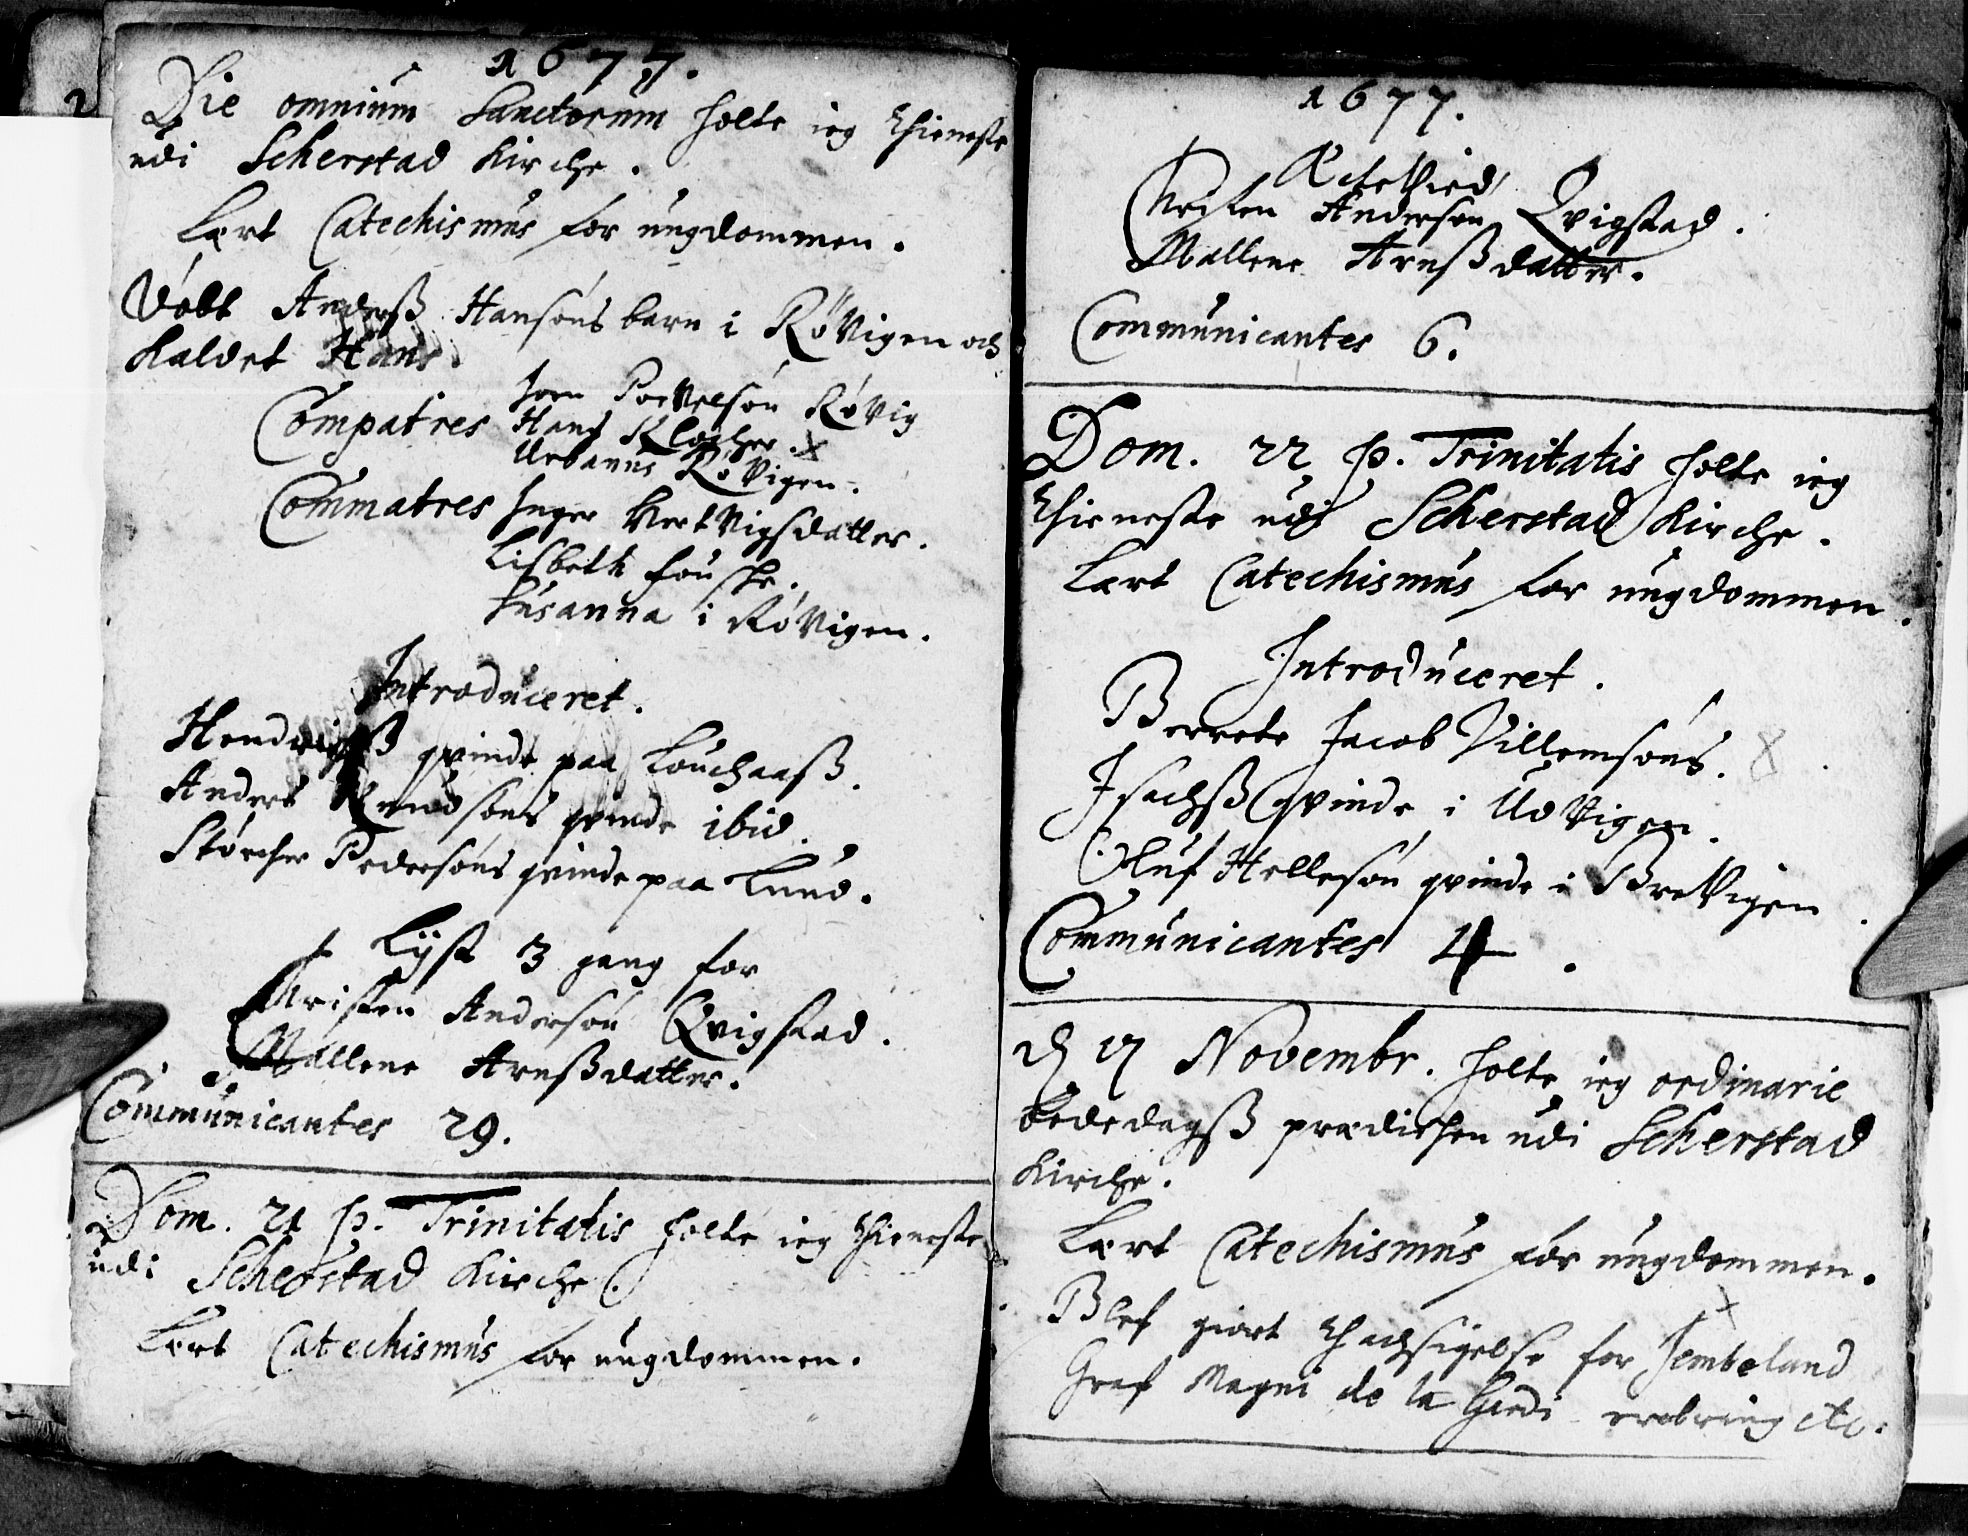 1677.
Die omnium Sanctorum holte ieg thieneste
udi Scherstad Kirche.
Lært Catechismus for ungdommen.
Døbt Anderß Hansøns barn i Røvigen och
kaldet Hans.
Compatres Joen Povelsøn Røvig
Hans Klocher. x
Urbanus Røvigen.
Commatres Inger Hertvigsdatter.
Lisbeth Fouske.
Susanna i Røvigen.
Introduceret.
Hendrichß qvinde paa Louchaaß.
Anders Knudsøns qvinde ibid.
Størcher Pedersøns qvinde paa Lund.
Lyst 3 gang for
Christen Andersøn Qvigstad.
Mallene Arneßdatter.
Communicantes 29.
Dom. 21 p. Trinitatis holte ieg thieneste
udi Scherstad Kirche.
Lært Catechismus for ungdommen.
1677.
Ectevied
Christen Andersøn Qvigstad.
Mallene Arneßdatter.
Communicantes 6.
Dom. 22 p. Trinitatis holte ieg
thieneste udi Scherstad Kirche.
Lært Catechismus for ungdommen.
Introduceret.
Berrete Jacob Villemsøns.
Isachß qvinde i Udvigen.
Oluf Hellesøn qvinde i Brevigen.
Communicantes 4.
d 17 Novembr. holte ieg ordinarie
bededagß prædichen udi Scherstad
Kirche.
Lært Catechismus for ungdommen.
x
Blef giort thachsigelse for Jembeland
Gref Magni de la Gardi erobring etc.